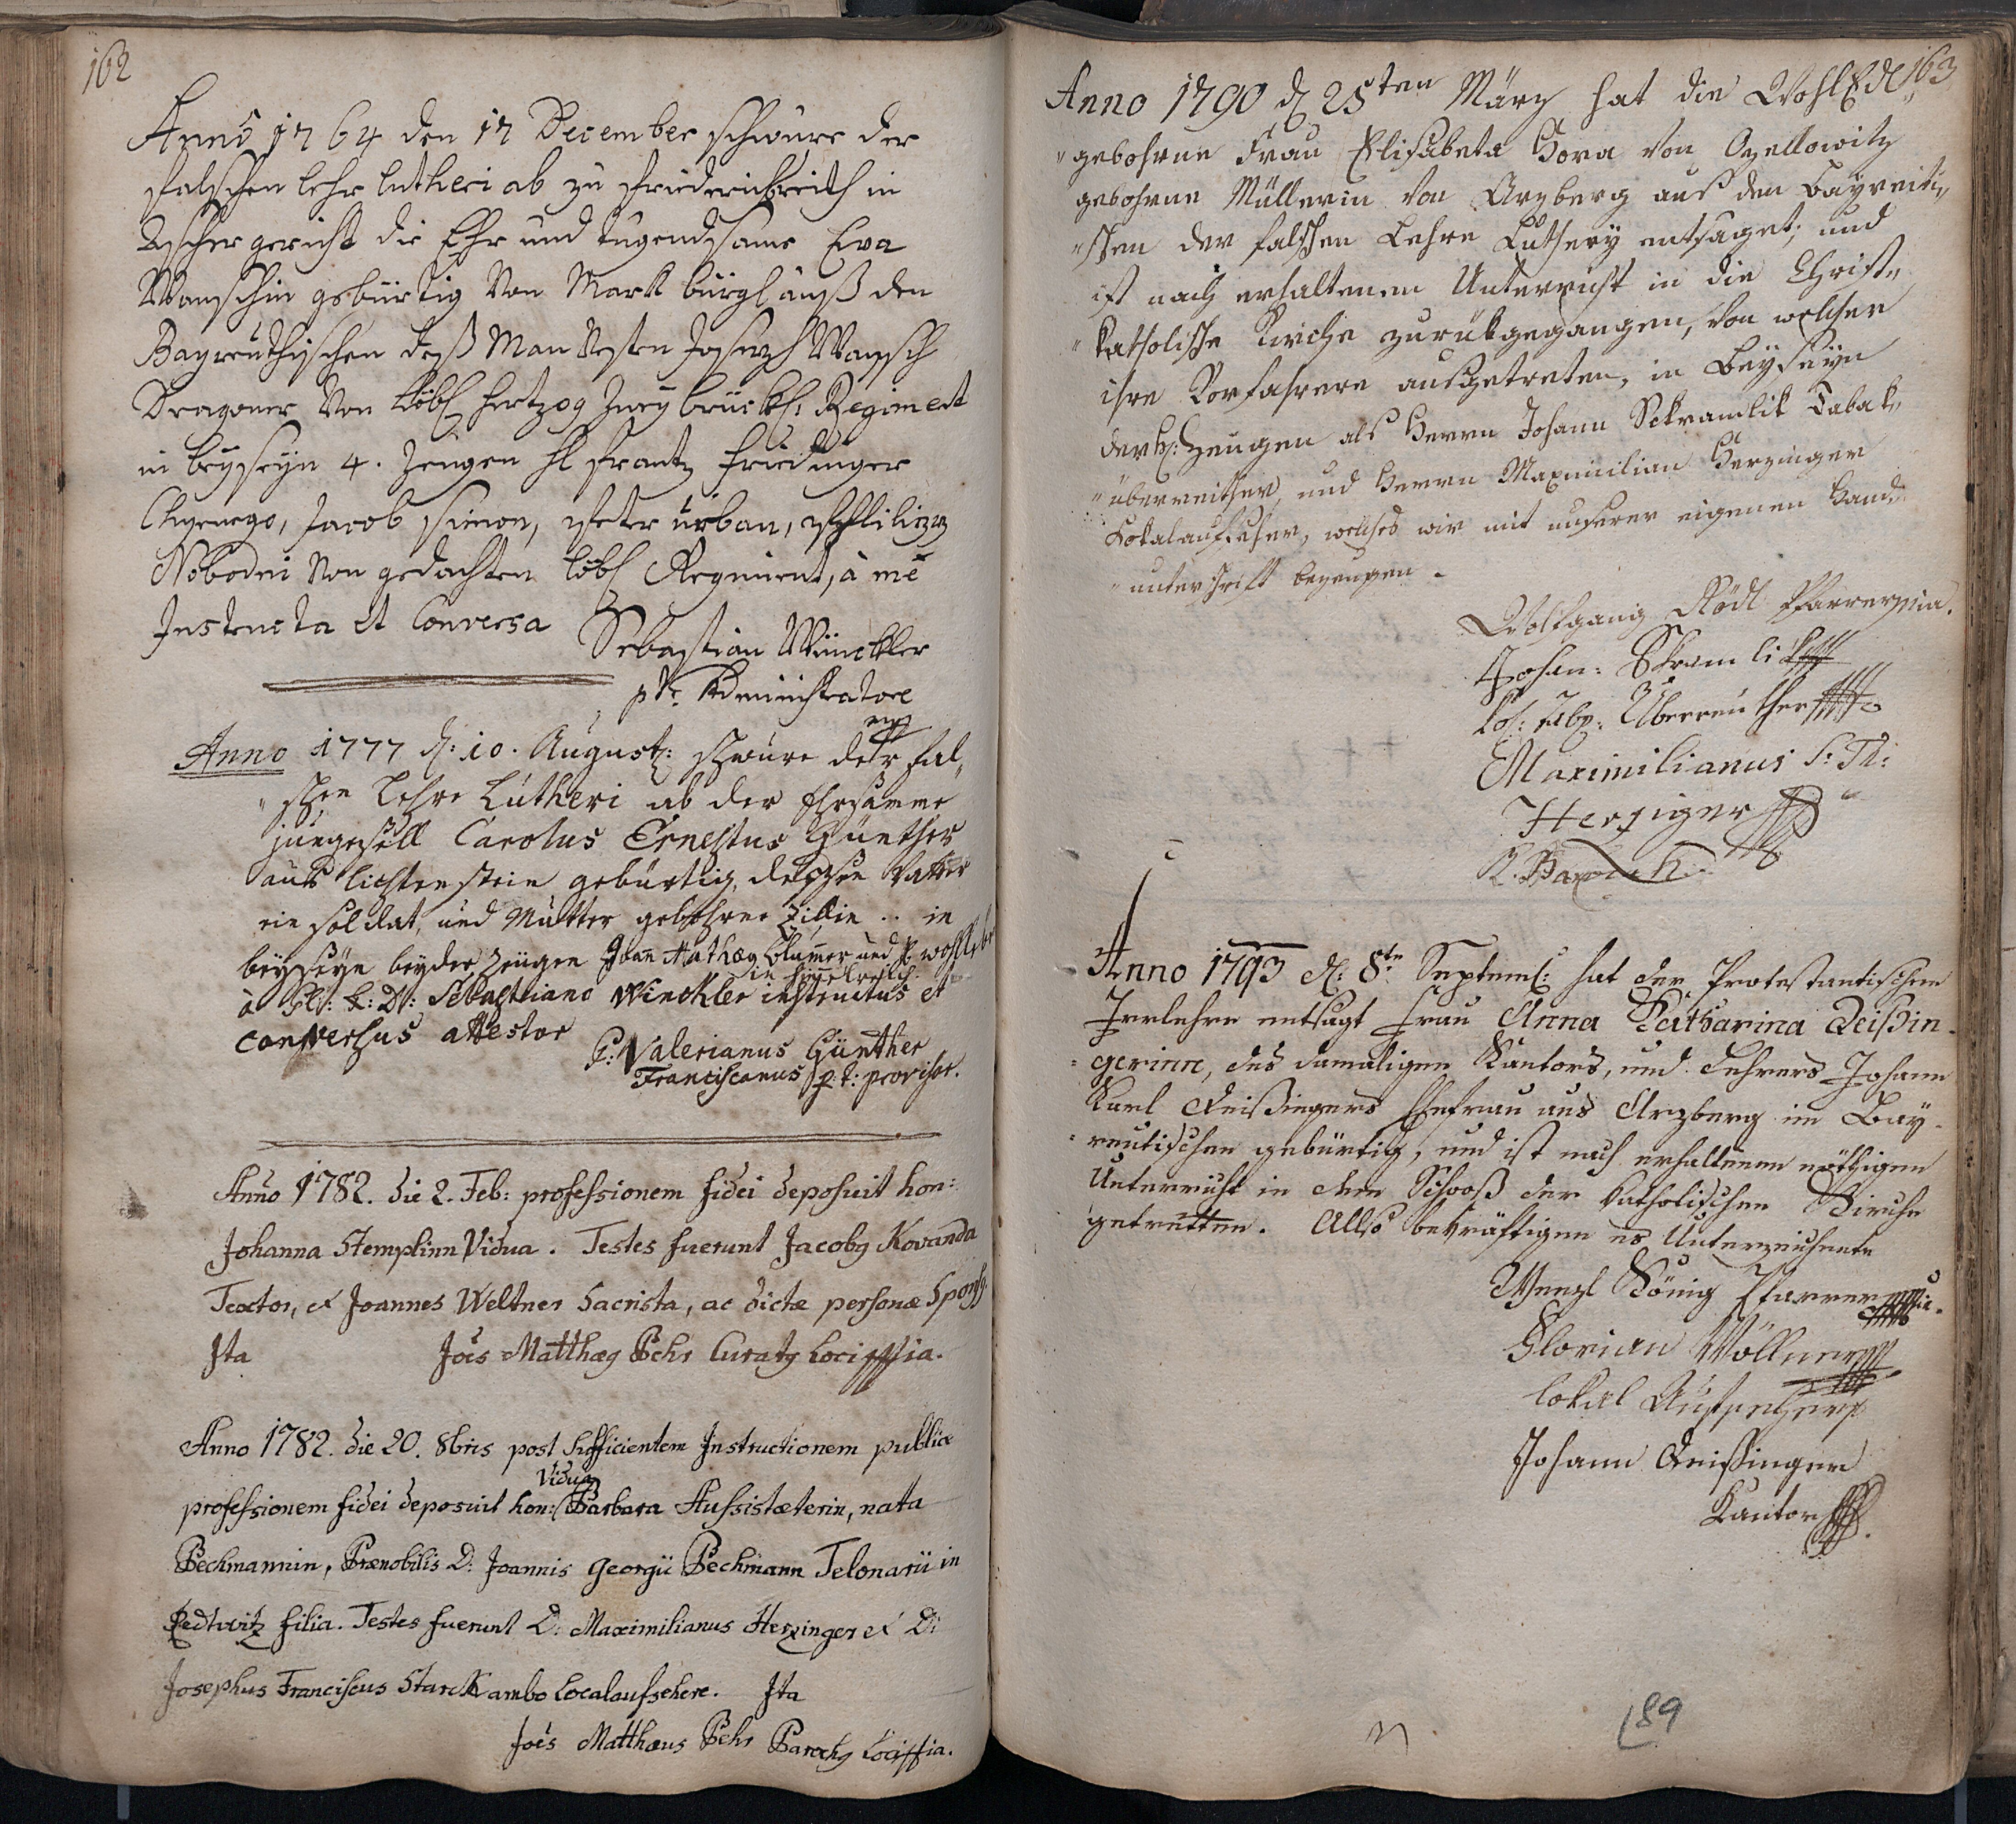 162
Anno 1764 den 17 December schwure der
falschen lehr lutheri ab zu friederichreith in
Ascher gericht die Ehr und tugendsame Eva
Wanschin gebürtig von Mark bürgl auß den
Bayreuthischen deß Man Josepf Wansch
Dragoner von Löbl hertzog Zweybrück: Regiment
in beyseyn 4. Zeugen frantz
Jacob Simon, Peter urban,
Nobodei von gedachten löbl Regiment, à me
Instructa et Conversa
Sebastian Winckler
p.te Administratore
mp
Anno 1777 d: 10. August: schwure der fal„
„schen Lehre Lutheri ab der Ehrsamme
jungesell Carolus Ernestus Günther
aus lichtenstein gebürtig, dessen Vatter
ein soldat, und Mutter gebohrne Zillin .. in
beyseyn beyder Zeugen Joan Mathæy blumer und
in
à Sebastiano Winckler instructus et
conversus attestor
P: Valerianus Günther
Franciscanus p: t: provisor.
Anno 1782. die 2. Feb: professionem fidei deposuit hon:
Johanna Stemplinn Vidua. Testes fuerunt Jacobg Kovanda
Textor, et Joannes Weltner Sacrista, ac dictæ personæ Spons9
Ita Jōēs Matthæg Pehr Curatg Loci mpia.
Anno 1782. die 20. 8bris post sufficientem Instructionem publicè
Vidua
professionem fidei deposuit hon: Barbara Aussistæterin, nata
Pechmannin, Prænobilis D: Joannis Georgii Pechmann Telonarii in
Redtwitz filia. Testes fuerunt D: Maximilianus Herzinger et D:
Josephus Franciscus Starck ambo Localaufsehere. Ita
Joēs Matthæus Pehr Parochg Loci mpia.
163
Anno 1790 d 25ten März hat die WohlEdl„
„gebohrne Frau Elisabeta Hora von Ozellowitz
gebohrne Müllerin von Arzberg aus den Bayreiti„
„schen der falschen Lehre Luthery entsaget; und
ist nach erhaltenem Unterricht in die Christ„
„katholische Kirche zurükgegangen, von welcher
ihre Vorfahrere ausgetreten, in Beyseyn
der H: Zeugen als Herrn Johann Sckramlik Tabak„
„überreither, und Herrn Maximilian Herzinger
Lokalaufseher, welches wir mit unserer eigenen Hand
„unterschrift bezeugen.
Wolfgang Rödl Pfarrer mpia.
Johan: Skramlik
Überreuther
Maximilianus
Herziger
Anno 1793 d: 8te Septemb: hat der Protestantischen
Irrlehre entsagt Frau Anna Catharina Deißin-
-gerinn, des damaligen Kantors, und Lehrers Johann
Karl Deißingers Ehefrau aus Arzberg im Bay-
-reutischen gebürtig, und ist nach erhaltenem nöthigen
Unterricht in den Schooß der katholischen Kirche
getretten. Allso bekräftigen es Unterzeichnete
Wenzl König Pfarrer mpia.
Florian Wöllner
Lokal Aufseher
Johann Deißinger
Kantor
189